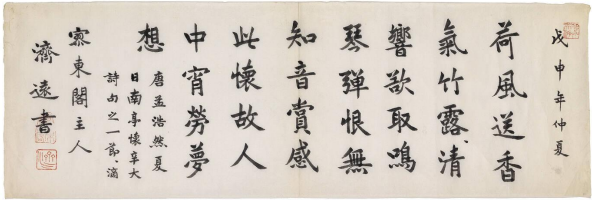 戊申年仲夏
荷風送香
氣竹露、清
響欲取鳴
琴彈恨無
知音賞感
此懷故人
中宵勞夢
想
唐孟浩然夏
日南亭懷辛大
詩句之一節、滴
東閣主人
濟遠書